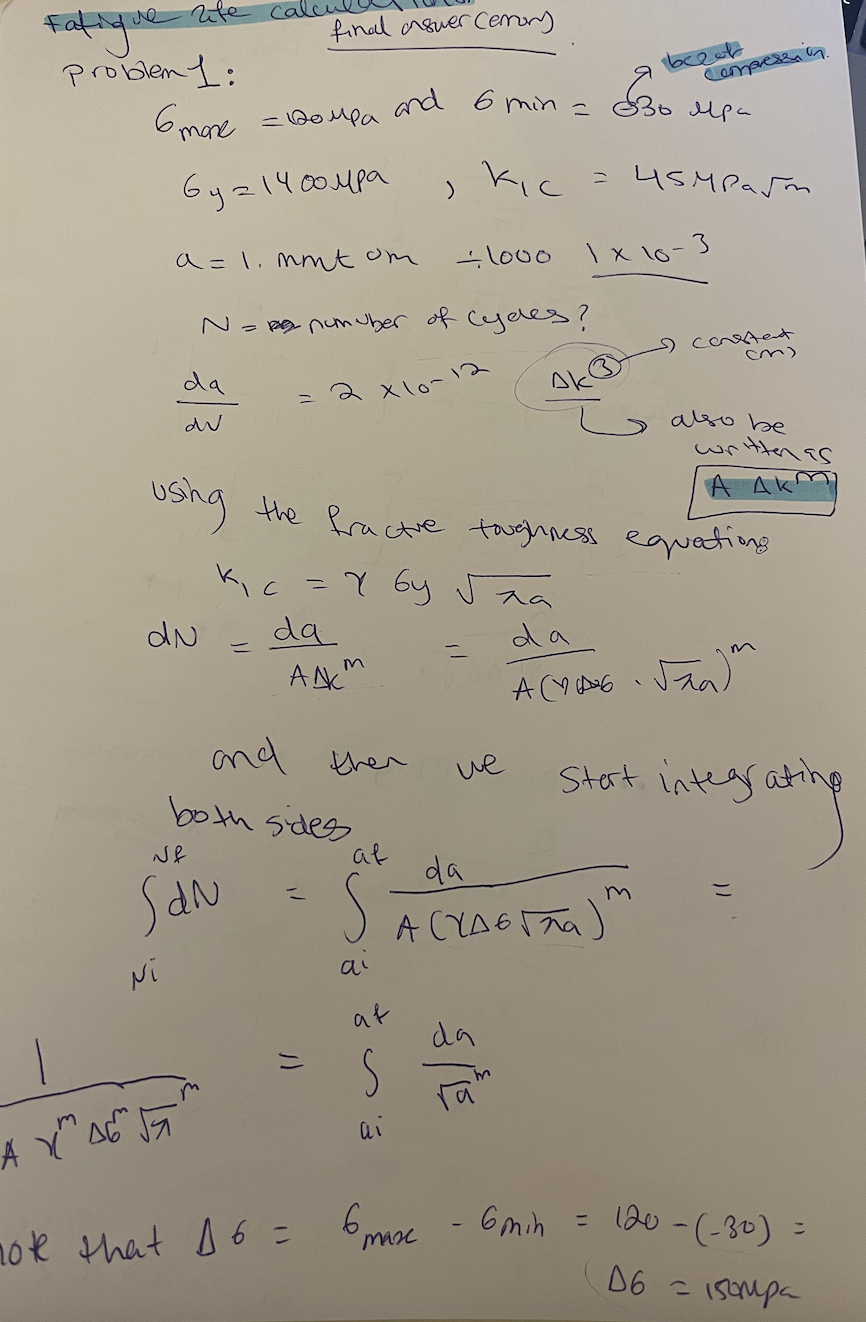 Fatigue life calculations
final answer (errors)
Problem 1:
because compression.
6max = 120 MPa and 6 min = -30 MPa
6y = 1400 MPa , K1C = 45 MPa√m
a = 1. mm to m ÷1000 1 x 10-3
N = number of cycles?
da/dN = 2 x10-12 ΔK3 → constant (m)
also be
written as
A ΔKm
using the fractre toughness equation
K1C = Y 6y √πa
dN = da/AΔKm = da/A(YΔ6 . √πa)m
and then we start integrating
both sides
∫Ni Nf dN = ∫ai af da/A(YΔ6√πa)m =
1/A Ym Δ6m √πm = ∫ai af da/√am
note that Δ6 = 6max - 6min = 120 -(-30) =
Δ6 = 150MPa